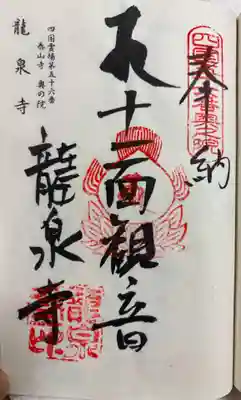 奉納
十一面観音
龍泉寺
四国霊場第五十六番
泰山寺 奥の院
龍泉寺